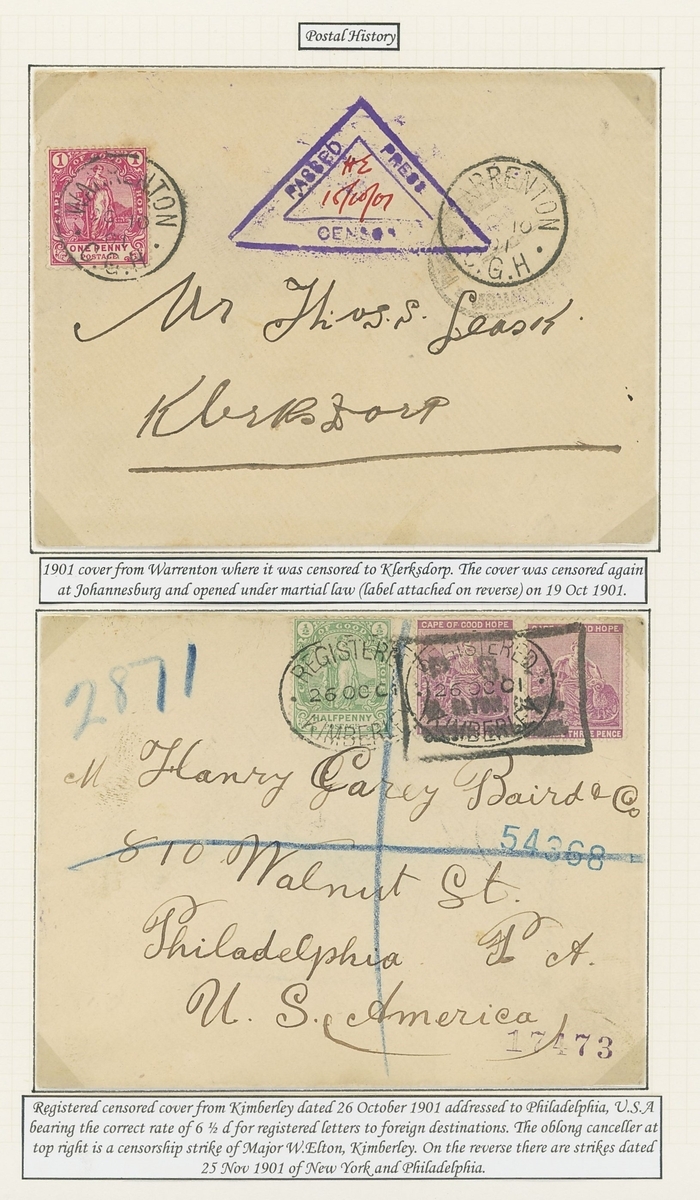 Postal History
1
1
ONE PENNY
POSTAGE
WARRENTON
C.G.H.
PASSED
PRESS
CENSOR
HE
18/10/01
WARRENTON
10
C.G.H.
Mr Thos. S. Leask.
Klerksdorp
1901 cover from Warrenton where it was censored to Klerksdorp. The cover was censored again
at Johannesburg and opened under martial law (label attached on reverse) on 19 Oct 1901.
2871
½
½
HALFPENNY
REGISTERED
26 OC 01
KIMBERLEY
CAPE OF GOOD HOPE
REGISTERED
26 OC 01
KIMBERLEY
THREE PENCE
M Hanry Carey Baird & Co
54368
810 Walnut St.
Philadelphia P A.
U. S. America
17473
Registered censored cover from Kimberley dated 26 October 1901 addressed to Philadelphia, U.S.A
bearing the correct rate of 6 ½ d for registered letters to foreign destinations. The oblong canceller at
top right is a censorship strike of Major W.Elton, Kimberley. On the reverse there are strikes dated
25 Nov 1901 of New York and Philadelphia.